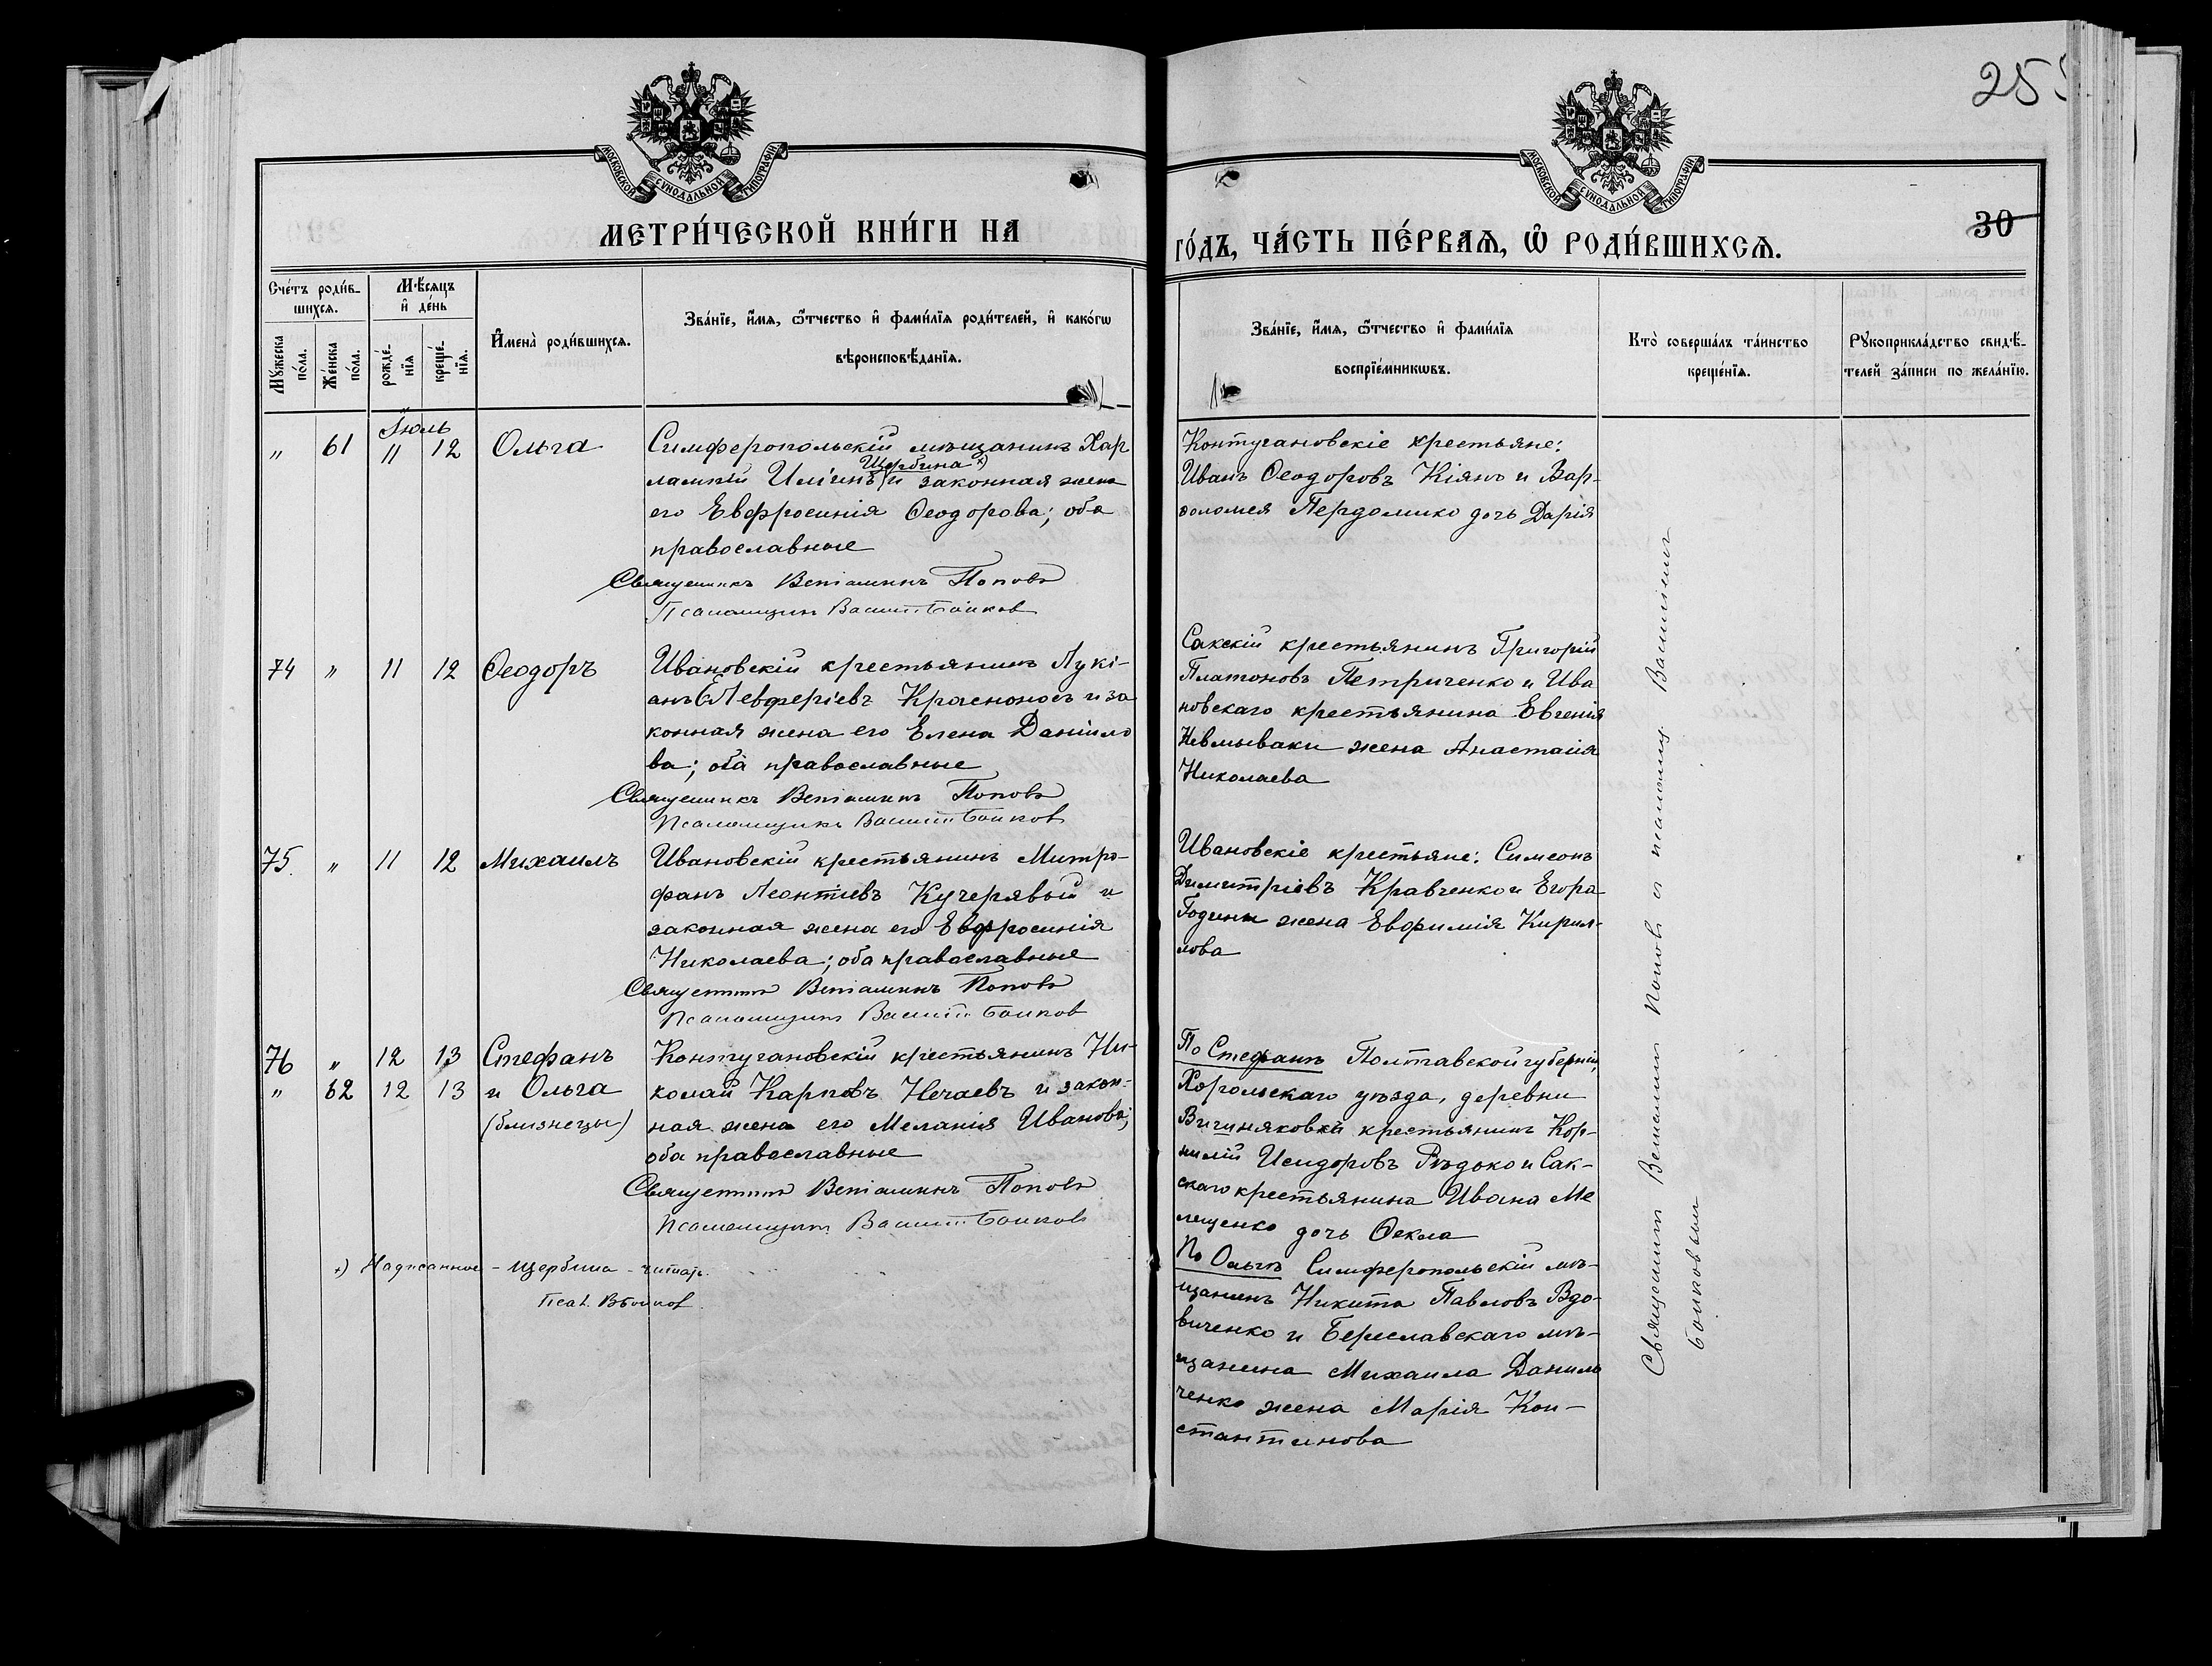 255
МОСКОВСКОЙ СѴНОДАЛЬНОЙ ТИПОГРАФІИ
МОСКОВСКОЙ СѴНОДАЛЬНОЙ ТИПОГРАФІИ
МЕТРИ́ЧЕСКОЙ КНИ́ГИ НА
ГО́ДЪ, ЧА́СТЬ ПЕ́РВАѦ, Ѡ҆ РОДИ́ВШИХСѦ.
30
Сче́тъ роди́в-
шихсѧ.
Мѣ́сѧцъ
и҆ де́нь
Мꙋ́жеска
по́ла.
Же́нска
по́ла.
рожде́-
нїѧ
креще́-
нїѧ.
И҆мена̀ роди́вшихсѧ.
Зва́нїе, и҆́мѧ, ѻ҆́тчество и҆ фами́лїѧ роди́телей, и҆ како́гѡ
вѣроисповѣ́данїѧ.
Зва́нїе, и҆́мѧ, ѻ҆́тчество и҆ фами́лїѧ
воспрїе́мникѡвъ.
Кто̀ соверша́лъ та́инство
креще́нїѧ.
Рꙋкоприкла́дство свидѣ́-
телей за́писи по жела́нїю.
Іюль
" 61 11 12 Ольга Симферопольскій мѣщанинъ Хар
Щербина +)
лампій Иліинъ и законная жена
его Евфросинія Ѳеодорова; оба
православные
Священникъ Веніаминъ Поповъ
Псаломщикъ Василій Боиков
Контугановскіе крестьяне:
Иванъ Ѳеодоровъ Кіянъ и Вар-
ѳоломея Пердомико дочь Дарія
74 " 11 12 Ѳеодоръ Ивановскій крестьянинъ Лукі-
анъ Елевферіевъ Красноносъ и за
конная жена его Елена Даніило
ва; оба православные
Священникъ Веніаминъ Поповъ
Псаломщикъ Василій Боиков
Сакскій крестьянинъ Григорій
Платоновъ Петриченко и Ива
новскаго крестьянина Евгенія
Невмываки жена Анастасія
Николаева
75. " 11 12 Михаилъ Ивановскій крестьянинъ Митро-
фанъ Леонтіевъ Кучерявый и
законная жена его Евфросинія
Николаева; оба православные
Священникъ Веніаминъ Поповъ
Псаломщикъ Василій Боиков
Ивановскіе крестьяне: Симеонъ
Димитріевъ Кравченко и Егора
Годины жена Евфимія Кирил-
лова
76 " 12 13 Стефанъ Контугановскій крестьянинъ Ни-
" 62 12 13 и Ольга колай Карповъ Нечаевъ и закон-
(близнецы) ная жена его Меланія Иванова;
оба православные
Священникъ Веніаминъ Поповъ
Псаломщикъ Василій Боиков
По Стефанѣ Полтавской губерніи,
Хорольскаго уѣзда, деревни
Вишняковки крестьянинъ Кор-
нилій Исидоровъ Рѣдько и Сак-
скаго крестьянина Ивана Ме
лещенко дочь Ѳекла
По Ольгѣ Симферопольскій мѣ-
щанинъ Никита Павловъ Вдо-
виченко и Бериславскаго мѣ-
щанина Михаила Данил
ченко жена Марія Кон-
стантинова
+) Надписанное - Щербина - читать.
Псал. В Боиков
Священникъ Веніаминъ Поповъ съ псаломщ. Василіемъ
Боиковымъ